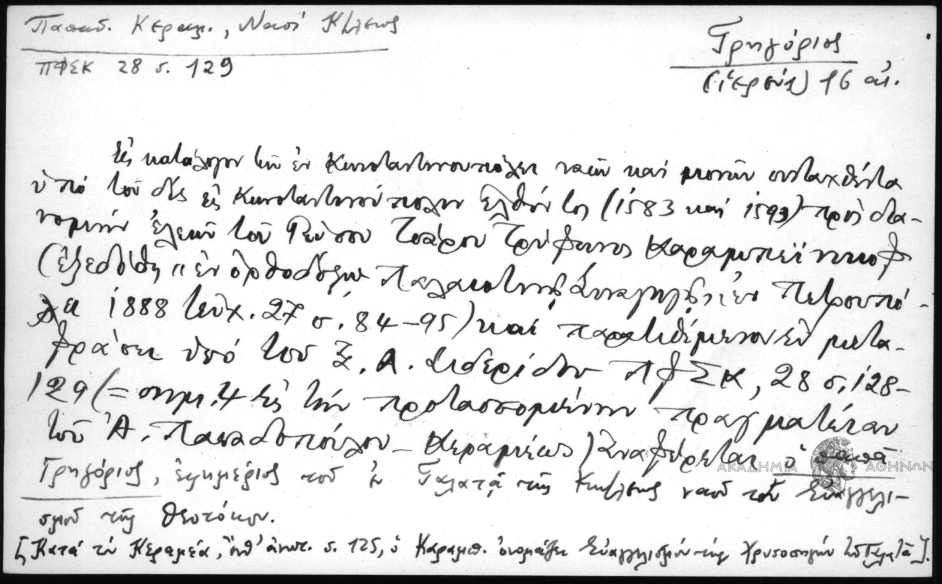 Παπαδ. Κεραμ., Ναοί Κ/λεως
ΠΦΣΚ 28 σ. 129
Γρηγόριος
(ἱερεύς) 16 αἰ.
Εἰς κατάλογον τῶν ἐν Κωνσταντινουπόλει ναῶν καί μονῶν συνταχθέντα
ὑπό τοῦ δίς εἰς Κωνσταντινούπολιν ἐλθόντος (1583 καί 1593) πρός δια-
νομήν ἐλεῶν τοῦ Ρώσου Τσάρου Τρύφωνος Καραμπεϊνικωφ
(ἐξεδόθη "ἐν ὀρθοδόξῳ Παλαιστίνης Συλλογῇ ἐν Πετρουπό-
λει 1888 τεῦχ. 27 σ. 84-95) καί παρατιθέμενον ἐν μετα-
φράσει ὑπό τοῦ Ξ. Α. Σιδερίδου ΠΦΣΚ, 28 σ. 128-
129 (= σημ. 4 εἰς τήν προτασσομένην πραγματείαν
τοῦ Ἀ. Παπαδοπούλου-Κεραμέως) ἀναφέρεται ὁ παπᾶ
Γρηγόριος, ἐφημέριος τοῦ ἐν Γαλατᾷ τῆς Κπόλεως ναοῦ τοῦ Εὐαγγελι-
σμοῦ τῆς Θεοτόκου.
[Κατά τόν Κεραμέα, ἔνθ' ἀνωτ. σ. 125, ὁ Καραμπ. ὀνομάζει Εὐαγγελισμόν τήν Χρυσοπηγήν τοῦ Γαλατᾶ].
ΑΚΑΔΗΜΙΑ ΑΘΗΝΩΝ